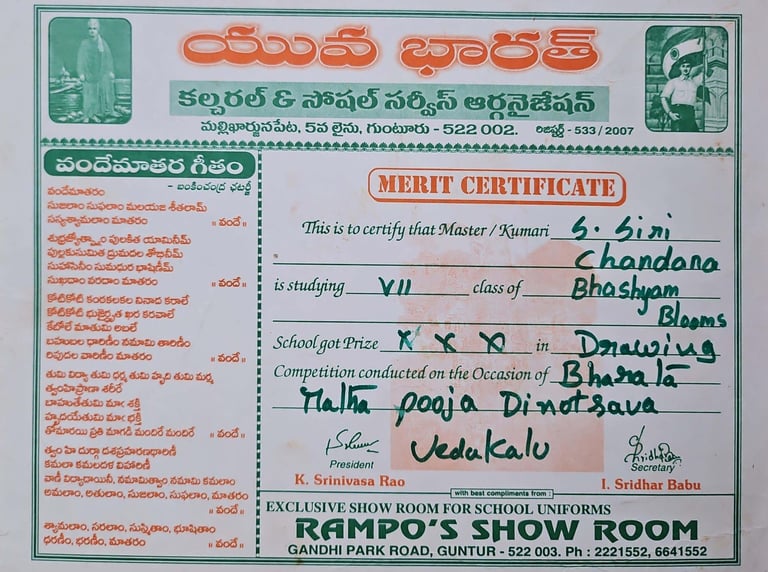 యువ భారత్
కల్చరల్ & సోషల్ సర్వీస్ ఆర్గనైజేషన్
మల్లిఖార్జునపేట, 5వ లైను, గుంటూరు - 522 002. రిజిష్టర్ - 533 / 2007
వందేమాతర గీతం
- బంకించంద్ర ఛటర్జీ
వందేమాతరం
సుజలాం సుఫలాం మలయజ శీతలామ్
సస్యశ్యామలాం మాతరం ॥ వందే ॥
శుభ్రజ్యోత్స్నాం పులకిత యామినీమ్
పుల్లకుసుమిత ద్రుమదల శోభినీమ్
సుహాసినీం సుమధుర భాషిణీమ్
సుఖదాం వరదాం మాతరం ॥ వందే ॥
కోటికోటి కంఠకలకల నినాద కరాలే
కోటికోటి భుజైర్ధృత ఖర కరవాలే
కేబోలే మాతుమి లబలే
బహుబల ధారిణీం నమామి తారిణీం
రిపుదల వారిణీం మాతరం ॥ వందే ॥
తుమి విద్యా తుమి ధర్మ తుమి హృది తుమి మర్మ
త్వంహిప్రాణా శరీరే
బాహుతేతుమి మా శక్తి
హృదయేతుమి మా భక్తి
తోమారయి ప్రతి మాగడి మందిరే మందిరే ॥ వందే ॥
త్వం హి దుర్గా దశప్రహరణధారిణీ
కమలా కమలదళ విహారిణీ
వాణీ విద్యాదాయినీ, నమామిత్వాం నమామి కమలాం
అమలాం, అతులాం, సుజలాం, సుఫలాం, మాతరం
॥ వందే ॥
శ్యామలాం, సరలాం, సుస్మితాం, భూషితాం
ధరణీం, భరణీం, మాతరం ॥ వందే ॥
MERIT CERTIFICATE
This is to certify that Master / Kumari S. Siri
Chandana
is studying VII class of Bhashyam
Blooms
School got Prize X X X in Drawing
Competition conducted on the Occasion of Bharata
Matha pooja Dinotsava
Vedukalu
President
Secretary
K. Srinivasa Rao I. Sridhar Babu
with best compliments from :
EXCLUSIVE SHOW ROOM FOR SCHOOL UNIFORMS
RAMPO'S SHOW ROOM
GANDHI PARK ROAD, GUNTUR - 522 003. Ph : 2221552, 6641552